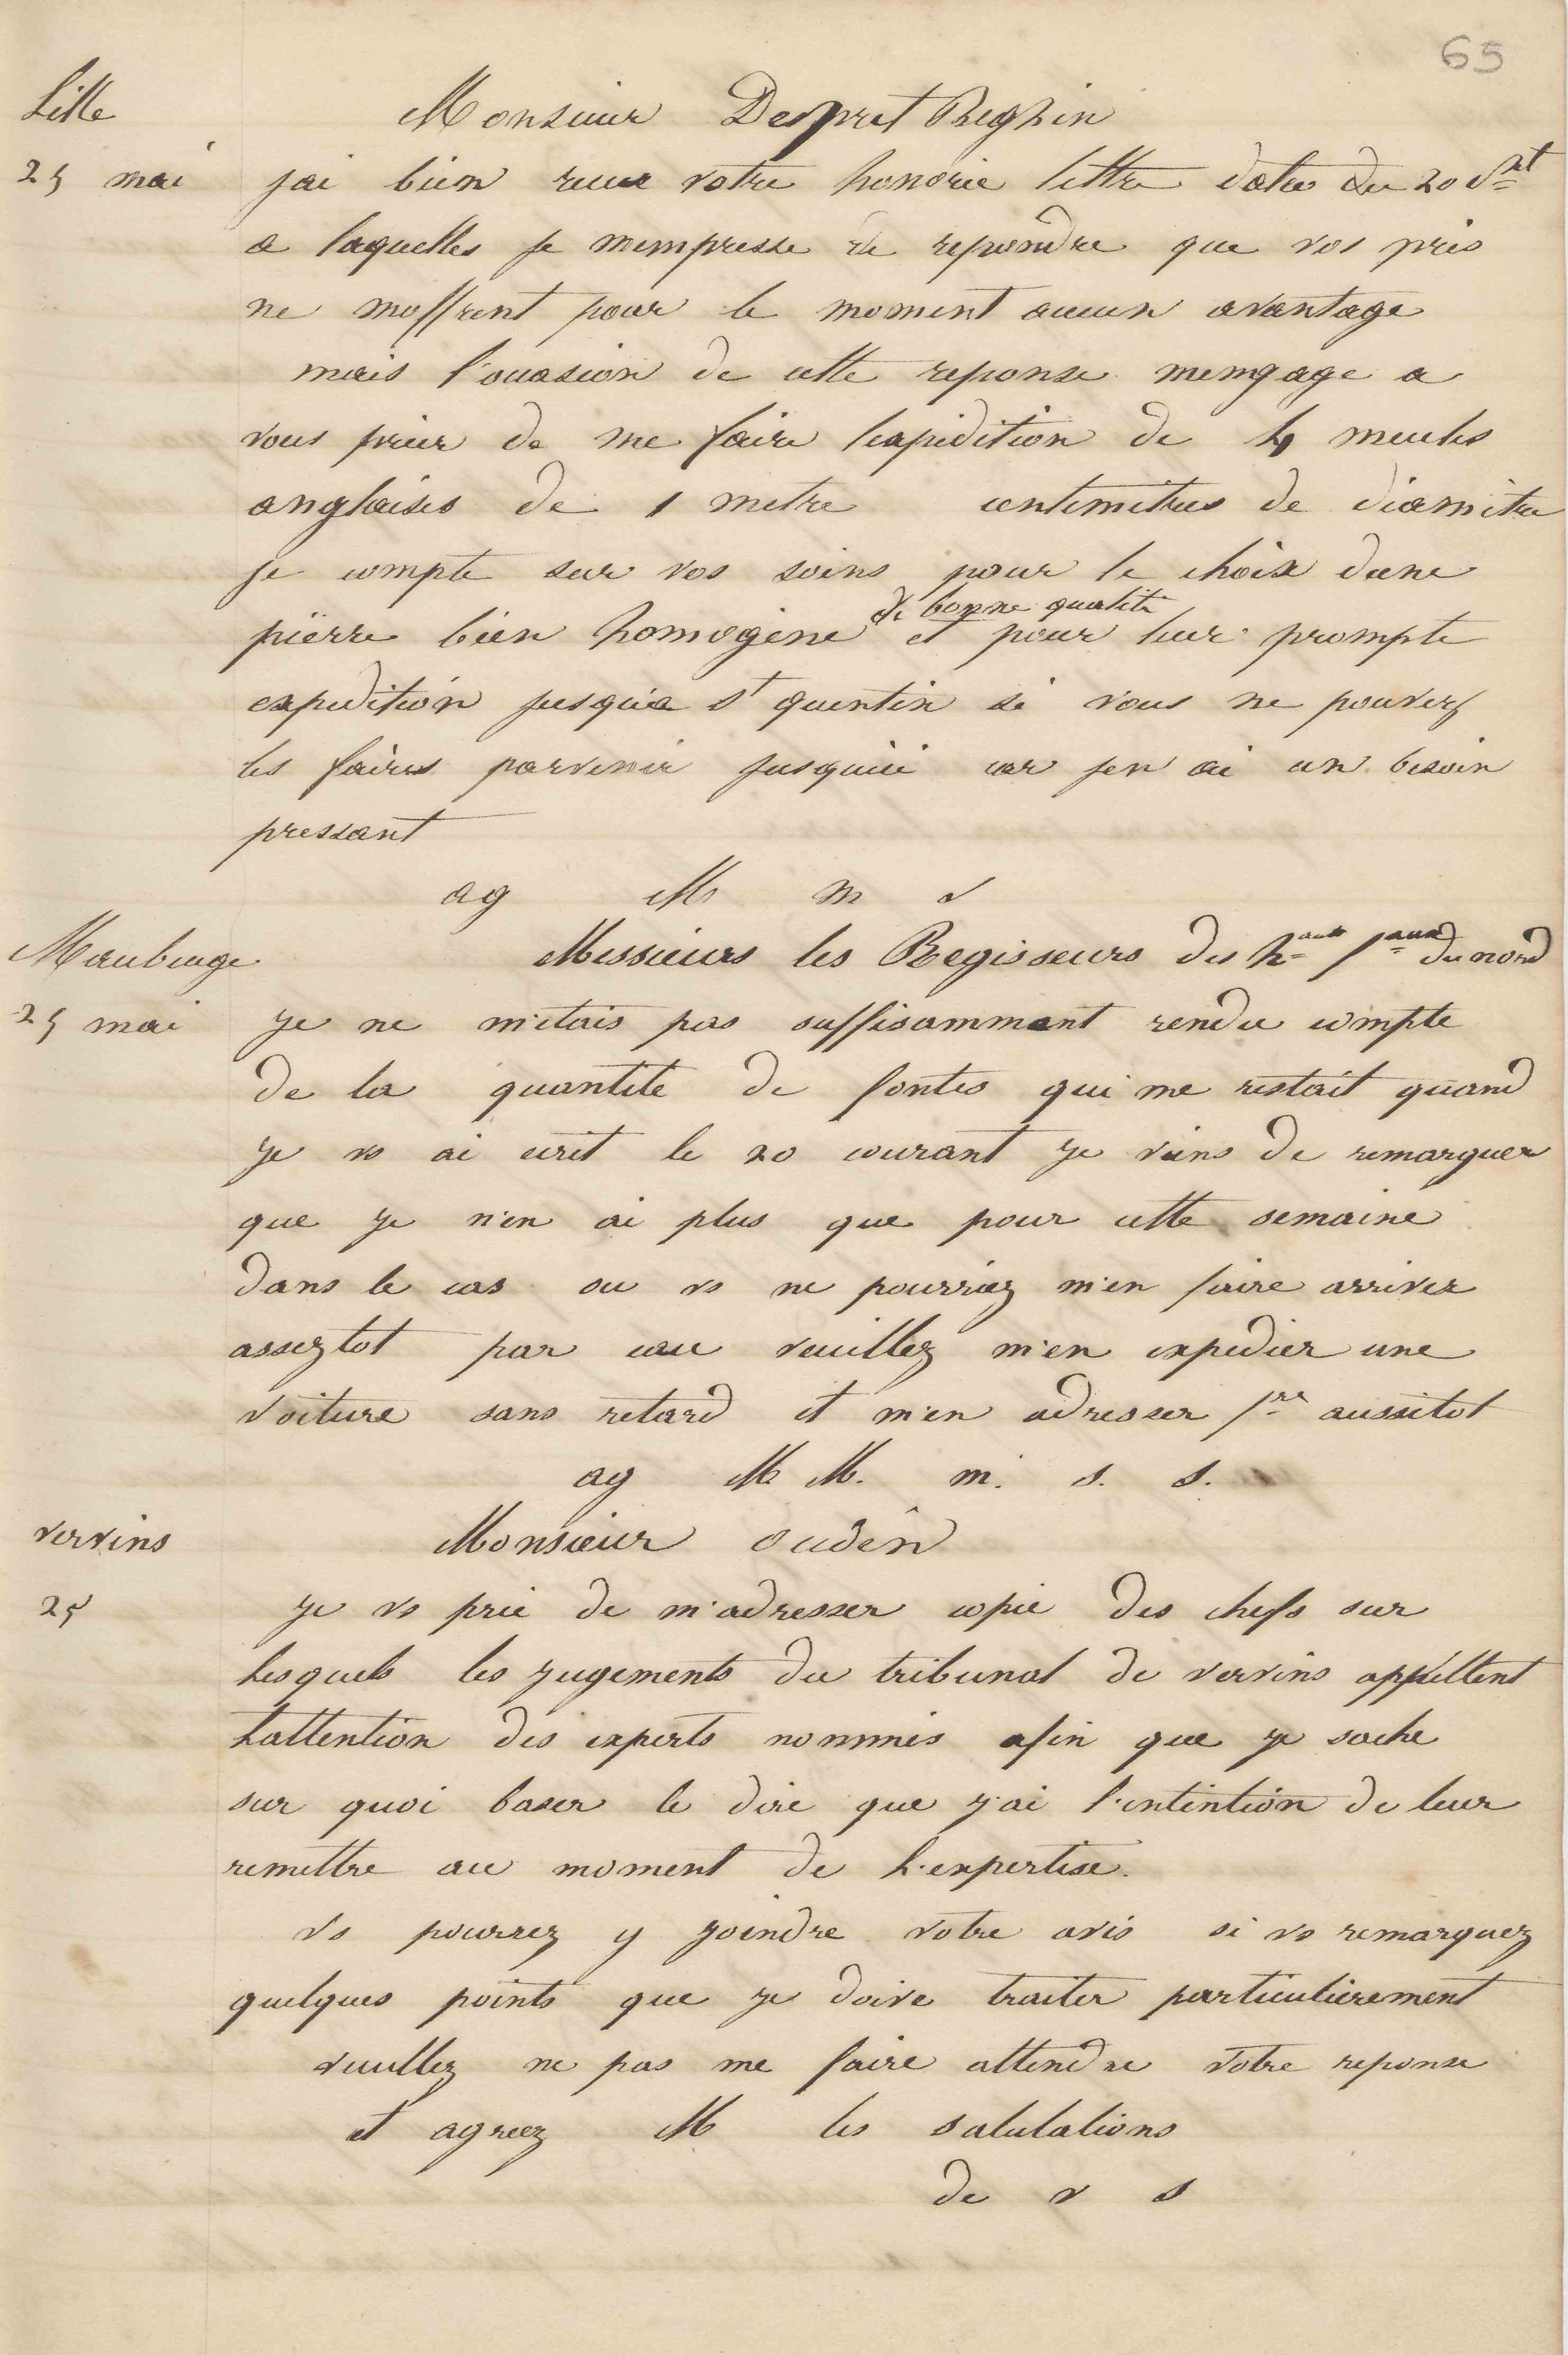 65
Lille
Monsieur Despret Beghin
25 mai
jai bien recue votre honorée lettre datée du 20 Ct
a laquelles je mempresse de repondre que vos pris
ne moffrent pour le moment aucun avantage
mais l'ouasion de cette reponse mengage a
vous prier de me faire lexpedition de 4 meules
anglaises de 1 metre centimètres de diamètre
je compte sur vos soins pour le choix dune
de bonne qualité
pierre bien homogène et pour leur prompte
expedition jusqu'a St quentin si vous ne pouvez
les faires parvenir jusquici car jen ai un besoin
pressant
ag M m s
Maubeuge
Messieurs les Regisseurs des hauts faux du nord
25 mai
je ne m'etais pas suffisamment rendu compte
de la quantite de fontes qui me restait quand
je vs ai ecrit le 20 courant je viens de remarquer
que je n'en ai plus que pour cette semaine
dans le cas ou vs ne pourriez m'en faire arriver
asseztot par eau veuillez m'en expedier une
voiture sans retard et m'en adresser fre aussitot
ag M M. m. s. s.
vervins
Monsieur oudin
25
je vs prie de m'adresser copie des chefs sur
lesquels les jugements du tribunal de vervins appellent
lattention des experts nommés afin que je sache
sur quoi baser le dire que j'ai l'intention de leur
remettre au moment de l'expertise.
vs pourrez y joindre votre avis si vs remarquez
quelques points que je doive traiter particulierement
veuillez ne pas me faire attendre votre reponse
et agreez M les salutations
de v s